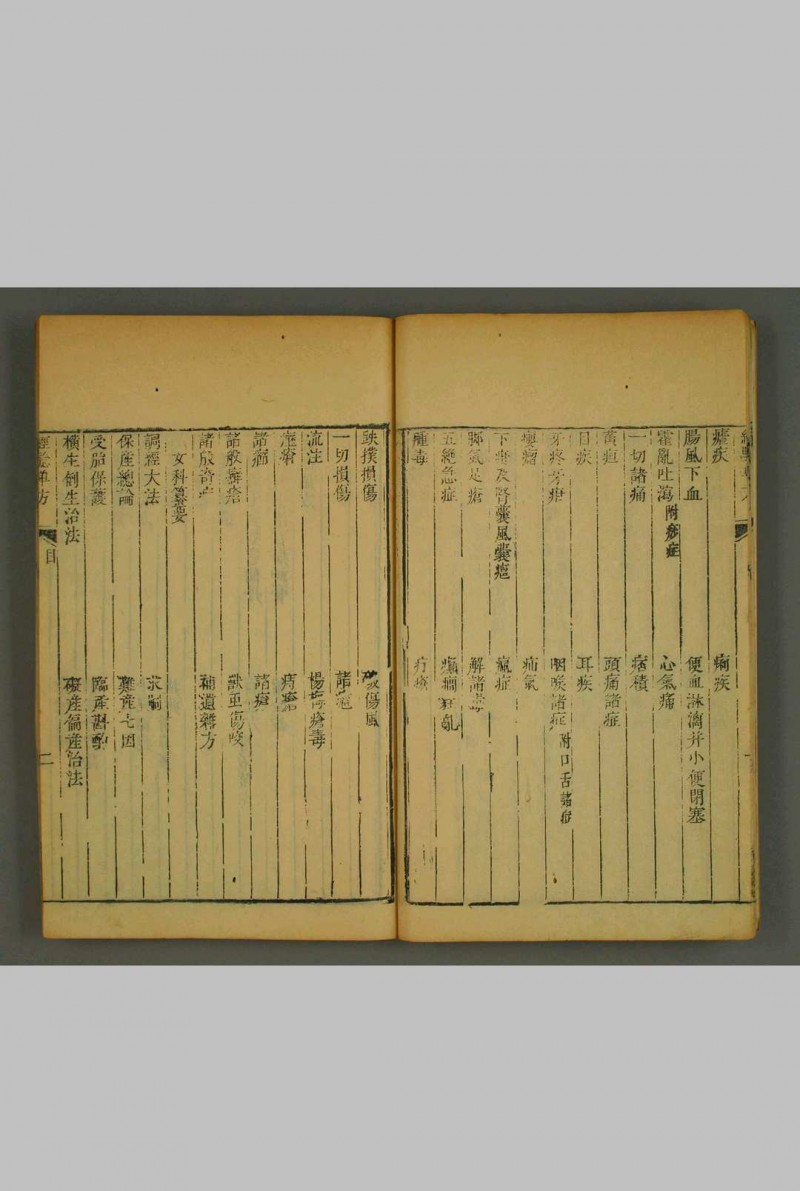 瘧疾 痢疾
腸風下血 便血淋漓并小便閉塞
霍亂吐瀉附痧症 心氣痛
一切諸痛 痞積
黃疸 頭痛諸症
目疾 耳疾
牙疼牙疳 咽喉諸症附口舌諸症
癭瘤 疝氣
下疳及腎囊風囊癰 瘋症
脚氣足瘡 解諸毒
五絕急症 癲癇
腫毒 疔瘡
跌撲損傷 破傷風
一切損傷 諸瘡
流注 楊梅瘡毒
瘰癧 痔瘡
諸癬 諸瘡
諸般癬瘡 獸虫傷咬
諸般奇症 補遺雜方
女科纂要
調經大法 求嗣
保產總論 難產七因
受胎保護 臨產斟酌
橫生倒生治法 礙產偏產治法
經驗單方 目 二